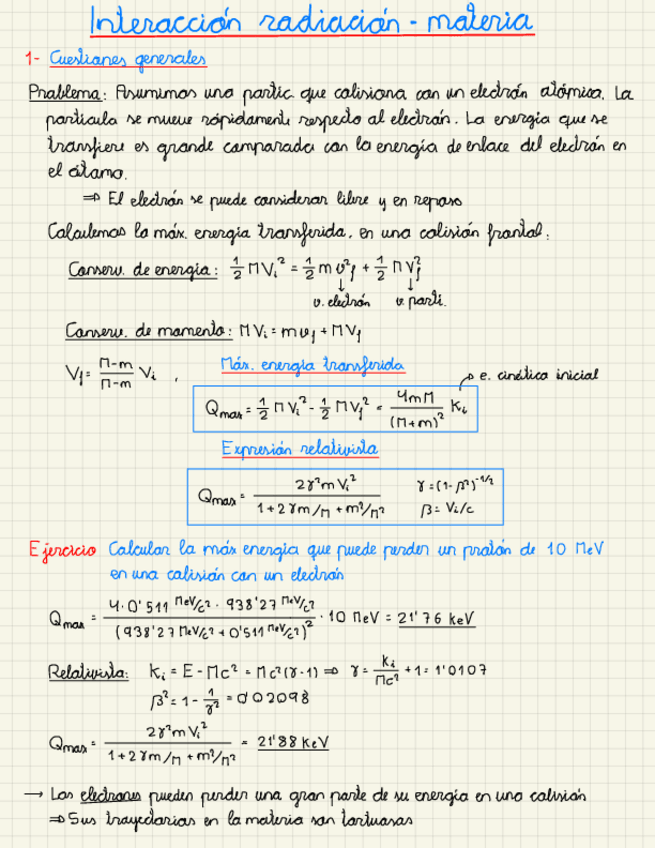 Interacción radiación - materia
1- Cuestiones generales
Problema: Asumimos una partíc que colisiona con un electrón atómico. La
partícula se mueve rápidamente respecto al electrón. La energía que se
transfiere es grande comparada con la energía de enlace del electrón en
el átomo.
⇒ El electrón se puede considerar libre y en reposo
Calculemos la máx. energía transferida, en una colisión frontal:
Conserv. de energía: 1/2 MVi² = 1/2 m v²f + 1/2 MV²f
↓ ↓
v. electrón v. partí.
Conserv. de momento: MVi = mvf + MVf
Vf = (M-m)/(M-m) Vi , Máx. energía transferida
e. cinética inicial
Qmax = 1/2 MVi² - 1/2 MVf² = 4mM/(M+m)² Ki
Expresión relativista
Qmax = 2γ²mVi²/(1+2γm/M+m²/M²) γ=(1-β²)^-1/2
β=Vi/c
Ejercicio Calcular la máx energía que puede perder un protón de 10 MeV
en una colisión con un electrón
Qmax = (4·0'511 MeV/c² · 938'27 MeV/c²)/(938'27 MeV/c² + 0'511 MeV/c²)² · 10 MeV = 21'76 keV
Relativista: Ki = E - Mc² = Mc²(γ-1) ⇒ γ = Ki/Mc² + 1 = 1'0107
β² = 1 - 1/γ² = 0'02098
Qmax = 2γ²mVi²/(1+2γm/M+m²/M²) = 21'88 KeV
→ Los electrones pueden perder una gran parte de su energía en una colisión
⇒ Sus trayectorias en la materia son tortuosas